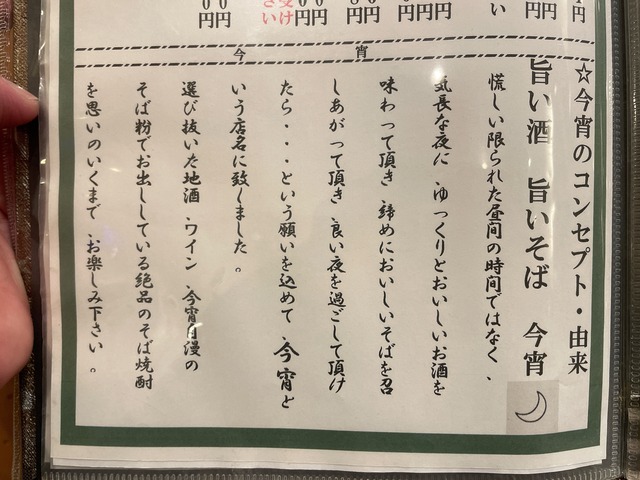 今宵
☆今宵のコンセプト・由来
旨い酒　旨いそば　今宵
慌しい限られた昼間の時間ではなく、
気長な夜に、ゆっくりとおいしいお酒を
味わって頂き、締めにおいしいそばを召
しあがって頂き、良い夜を過ごして頂け
たら・・・という願いを込めて　今宵と
いう店名に致しました。
選び抜いた地酒、ワイン、今宵自慢の
そば粉でお出ししている絶品のそば焼酎
を思いのいくまで、お楽しみ下さい。